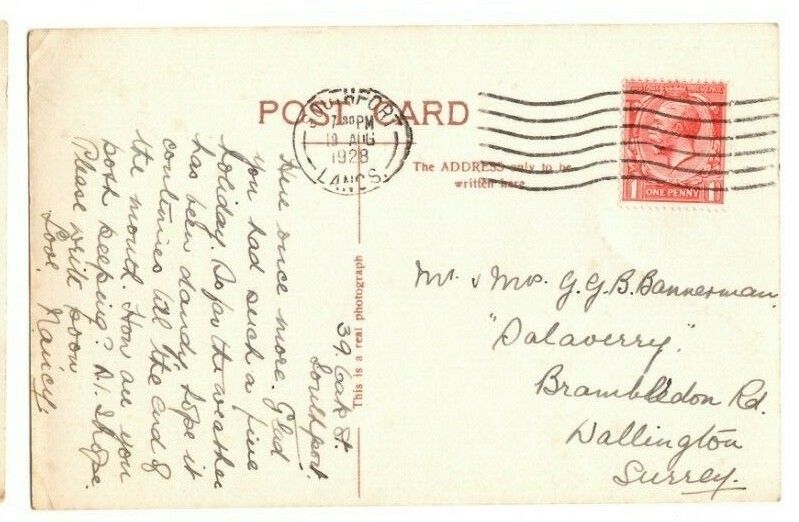 POST CARD
SOUTHPORT
7.30 PM
19 AUG
1928
LANCS.
The ADDRESS only to be
written here
ONE PENNY
1 1
This is a real photograph
39, Oak St.
Southport.
Here once more. Glad
you had such a fine
holiday. So far the weather
has been dandy, hope it
continues till the end of
the month. How are you
both keeping? A1. I hope.
Please write soon
Love. Nancy.
Mr & Mrs. G.G.B. Bannerman.
"Dalaverry,"
Brambledon Rd.
Wallington
Surrey.